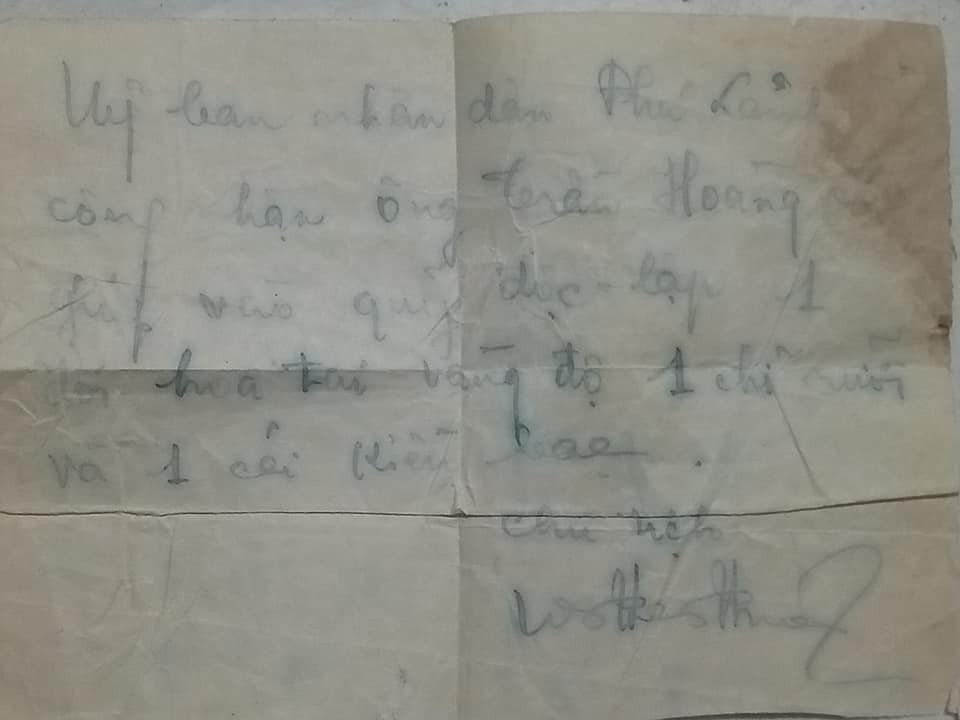 Uỷ ban nhân dân Phú Lãnh
công nhận ông Trần Hoàng có
giúp vào quỹ độc-lập 1
đôi hoa tai vàng độ 1 chỉ rưỡi
và 1 cái kiềng bạc.
Chủ tịch